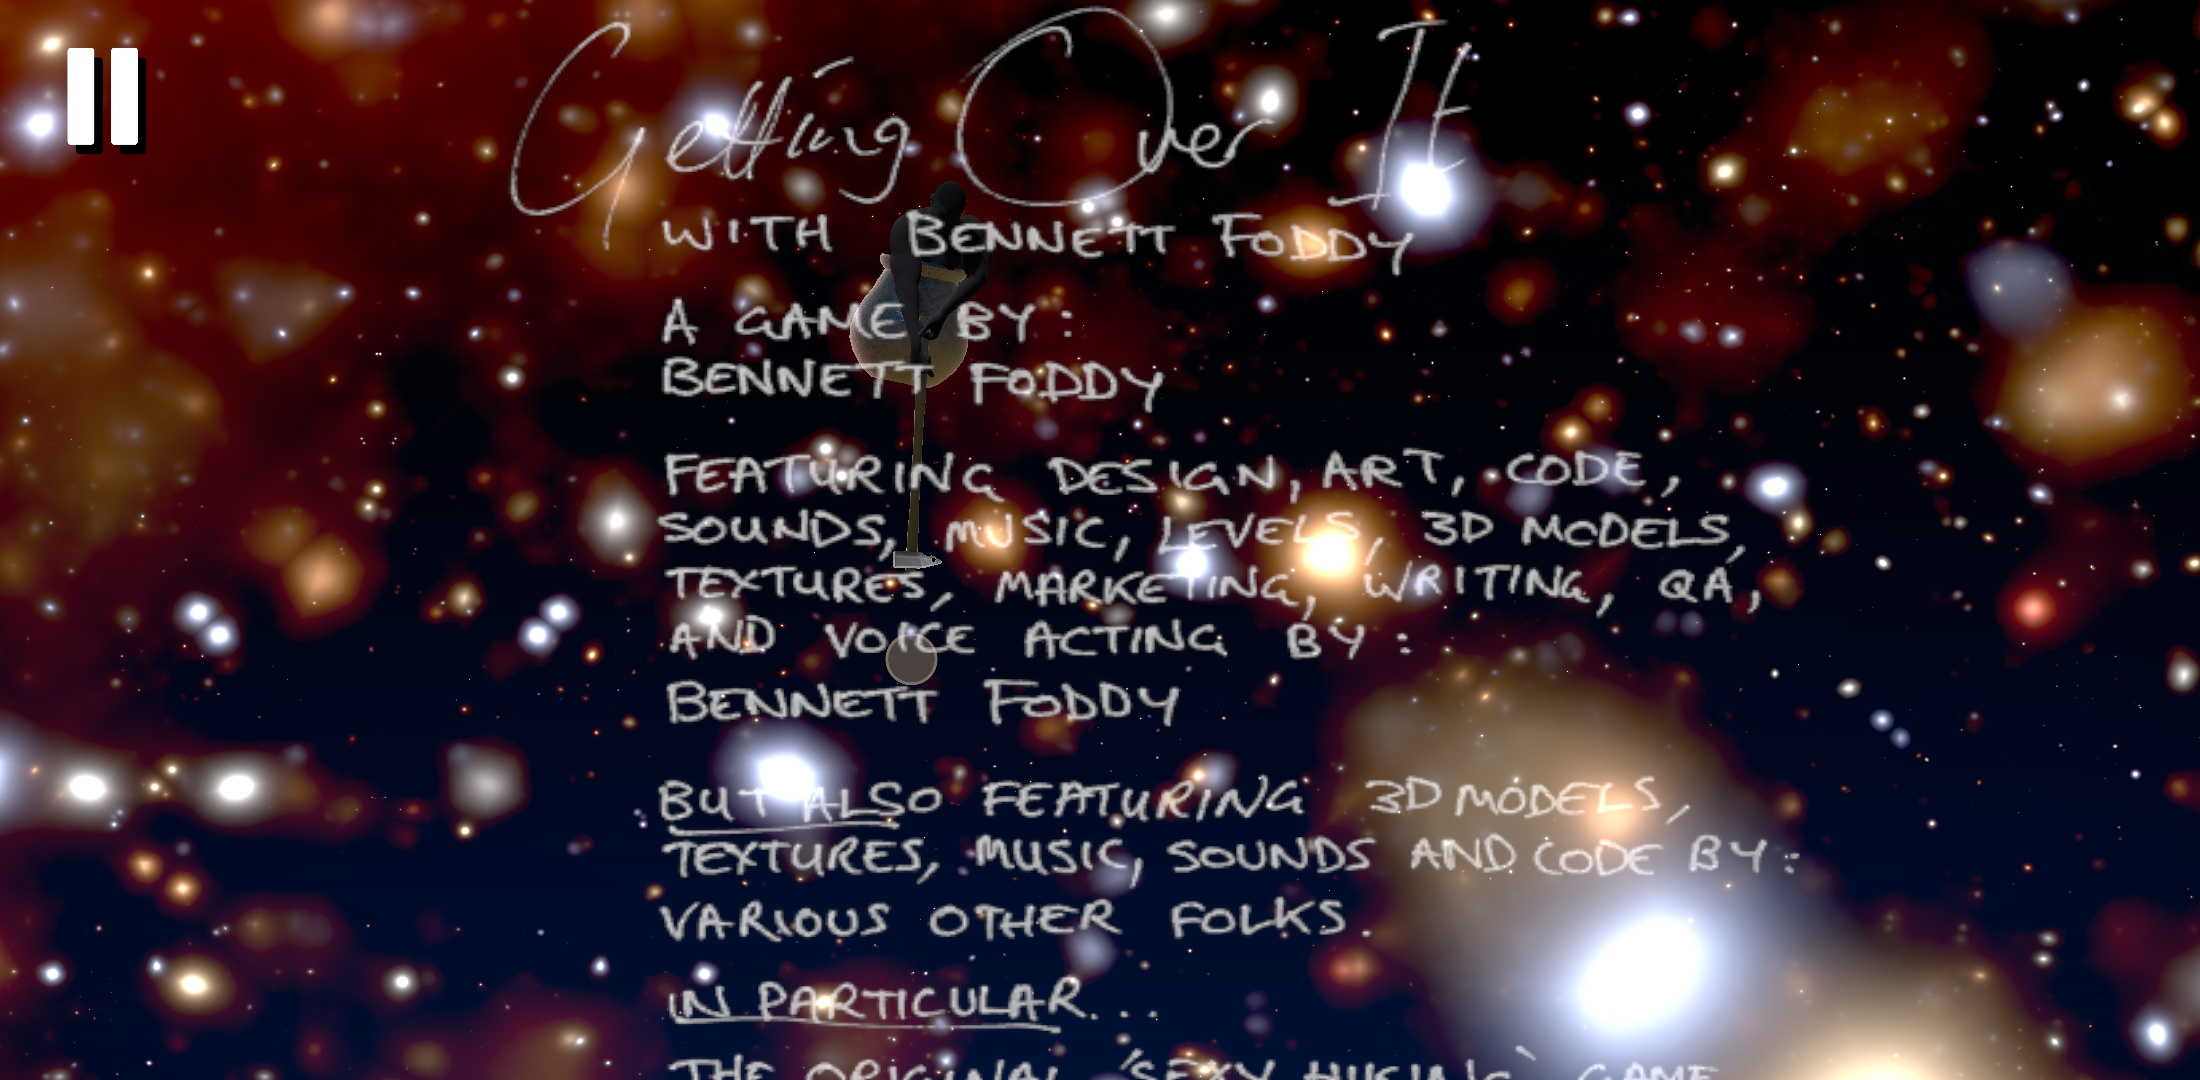 Getting Over It
WITH BENNETT FODDY
A GAME BY:
BENNETT FODDY
FEATURING DESIGN, ART, CODE,
SOUNDS, MUSIC, LEVELS, 3D MODELS,
TEXTURES, MARKETING, WRITING, QA,
AND VOICE ACTING BY:
BENNETT FODDY
BUT ALSO FEATURING 3D MODELS,
TEXTURES, MUSIC, SOUNDS AND CODE BY:
VARIOUS OTHER FOLKS.
IN PARTICULAR...
THE ORIGINAL 'SEXY HIKING' GAME